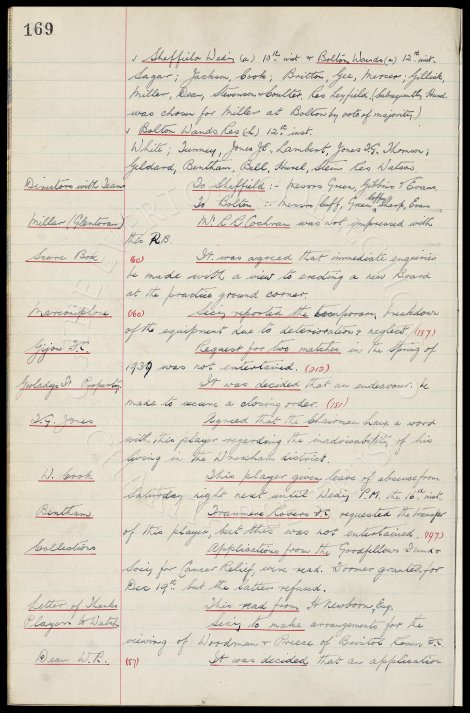 169
v Sheffield Wed (a) 10th inst & Bolton Wands (a) 12th inst.
Sagar; Jackson, Cook; Britton, Gee, Mercer; Gillick,
Miller, Dear, Stevenson & Coulter. Res Leyfield. (Subsequently Hurel
was chosen for Miller at Bolton by vote of majority.)
v Bolton Wands Res (h) 12th inst.
White; Tunney, Jones J.E, Lambert, Jones T.G. Thomson;
Geldard, Bentham, Bell, Hurel, Stein Res Watson
Directors with Teams To Sheffield:- Messrs Green, Gibbins & Evans.
To Bolton :- Messrs Cuff, Green, Sharp, Evans
Miller (Glentoran) Mr. C.C. Cochran was not impressed with
this R.B.
Score Box (60) It was agreed that immediate enquiries
be made with a view to erecting a new Board
at the practice ground corner.
Marconiphone (160) Secy reported the temporary breakdown
of the equipment due to deterioration & neglect. (187)
Gijon F.C. Request for two matches in the Spring of
1939 was not entertained. (212)
Gwladys St Property It was decided that an endeavour be
made to secure a closing order. (181)
T.G. Jones Agreed that the Chairman have a word
with this player regarding the inadvisability of his
living in the Wrexham district.
W. Cook This player given leave of absence from
Saturday night next until Wedy P.M. the 16th inst.
Bentham Tranmere Rovers F.C. requested the transfer
of this player, but this was not entertained. (197)
Collections Applications from the Goodfellows Fund &
Socy for Cancer Relief were read. Former granted for
Dec 19th but the latter refused.
Letter of Thanks This read from H Newborn, Esq.
Players to Watch Secy to make arrangements for the
viewing of Woodman & Preece of Bristol Rovers F.C.
Dear W.R. (57) It was decided that an application